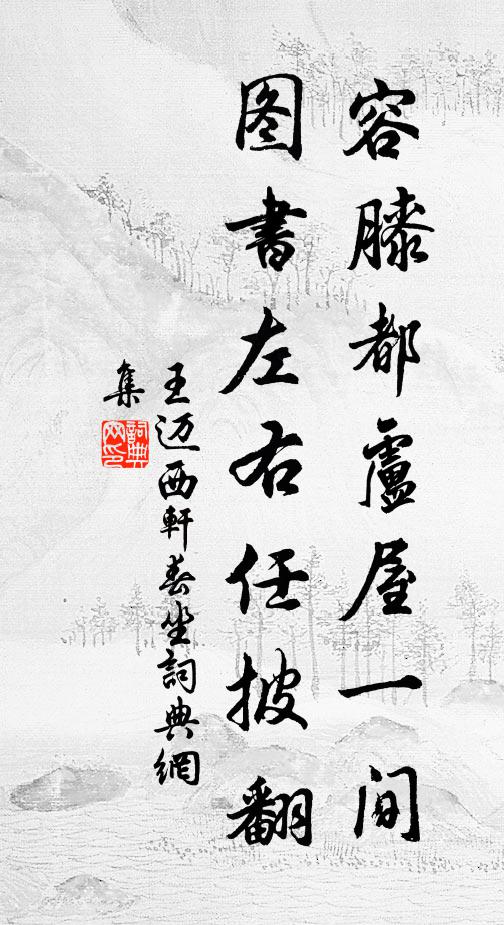 容膝都盧屋一间
图書左右任披翻
王迈西軒春坐詞典網
集
詞典网印